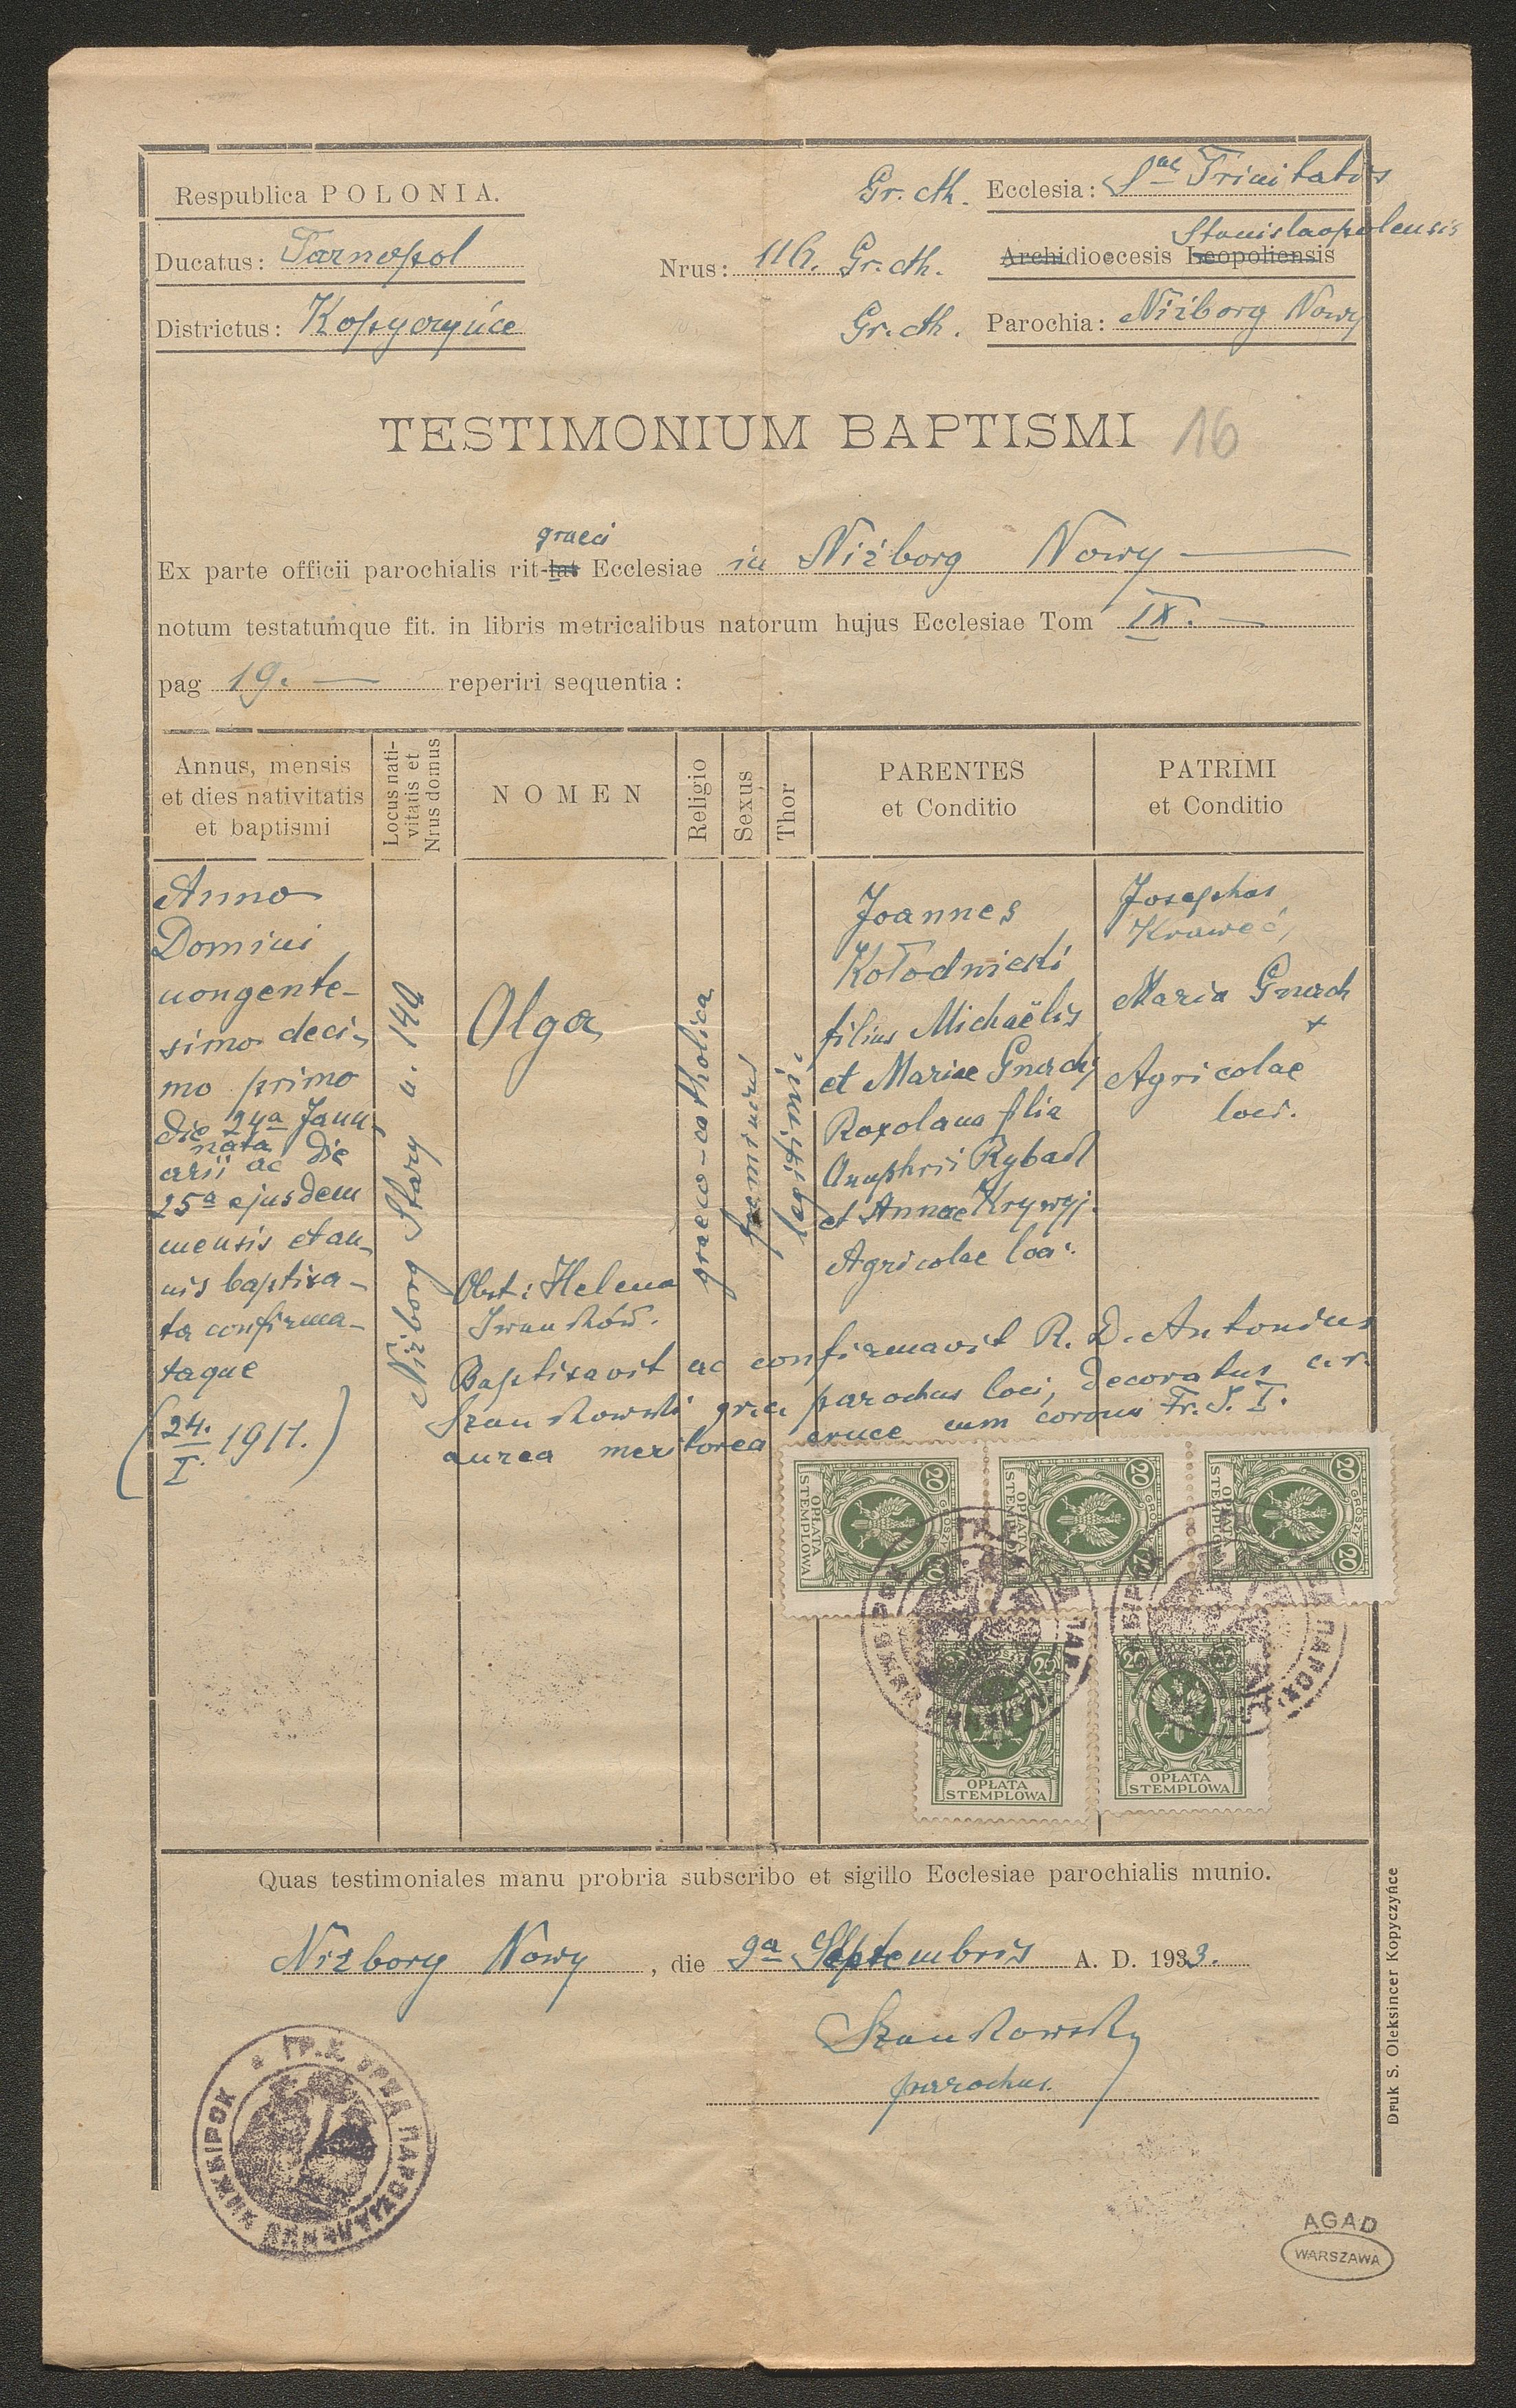 Respublica POLONIA.
Gr. cth. Ecclesia: Sae Trinitatis
Ducatus: Tarnopol
Nrus: 116. Gr. cth.
Stanislaopolensis
Archidioecesis Leopoliensis
Districtus: Kopyczyńce
Gr. cth. Parochia: Niżborg Nowy
TESTIMONIUM BAPTISMI 16
graeci
Ex parte officii parochialis rit-lat Ecclesiae in Niżborg Nowy
notum testatumque fit. in libris metricalibus natorum hujus Ecclesiae Tom IX.
pag 19. reperiri sequentia:
Annus, mensis
et dies nativitatis
et baptismi
Locus nati-
vitatis et
Nrus domus
NOMEN
Religio
Sexus
Thor
PARENTES
et Conditio
PATRIMI
et Conditio
Anno
Domini
nongente-
simo deci-
mo primo
die 24a Janu-
nata
arii ac die
25a ejusdem
mensis et an-
nis baptiza-
ta confirma-
taque
(24. I. 1911.)
Niżborg Stary n. 140
Olga
Obst: Helena
Iwanków.
graeco-catholica
feminine
legitimi.
Joannes
Kołodnicki
filius Michaëlis
et Mariae Gnach;
Roxolana filia
Onuphrii Rybak
et Annae Krywyj.
Agricolae loci.
Josephus
Kraweć,
Maria Gnach
+
Agricolae
loci.
Baptizavit ac confirmavit R. D. Antonius
Szankowski gr. c. parochus loci, decoratus c. r.
aurea meritorea cruce cum corona Fr. I. I.
20 GROSZY 20
OPŁATA
STEMPLOWA
20 GROSZY 20
OPŁATA
STEMPLOWA
20 GROSZY 20
OPŁATA
STEMPLOWA
20 20
OPŁATA
STEMPLOWA
20 20
OPŁATA
STEMPLOWA
Quas testimoniales manu probria subscribo et sigillo Ecclesiae parochialis munio.
Niżborg Nowy, die 9a Septembris A. D. 1933.
Szankowsky
parochus.
Druk S. Oleksincer Kopyczyńce
AGAD
WARSZAWA